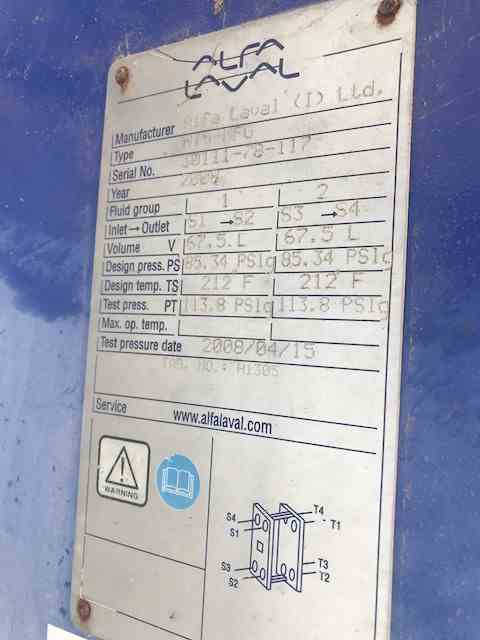 ALFA
LAVAL
Manufacturer Alfa Laval (I) Ltd.
Type
Serial No. 30111-78-117
Year
Fluid group 1 2
Inlet→Outlet S1 →S2 S3 →S4
Volume V 67.5 L 67.5 L
Design press. PS 85.34 PSIg 85.34 PSIg
Design temp. TS 212 F 212 F
Test press. PT 113.8 PSIg 113.8 PSIg
Max. op. temp.
Test pressure date 2008/04/15
TAG. NO.: A1305
Service www.alfalaval.com
WARNING
S4 T4
S1 T1
S3 T3
S2 T2